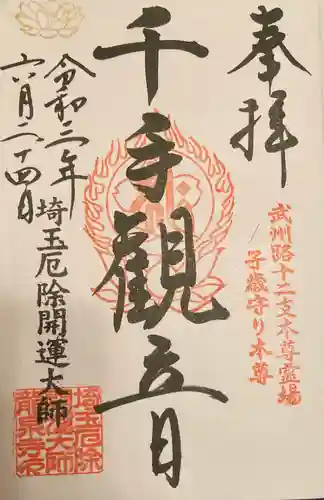 奉拝
武州路十二支本尊霊場
子歳守り本尊
千手観音
埼玉厄除開運大師
令和二年
六月二十四日
埼玉厄除
開運大師
龍泉寺印